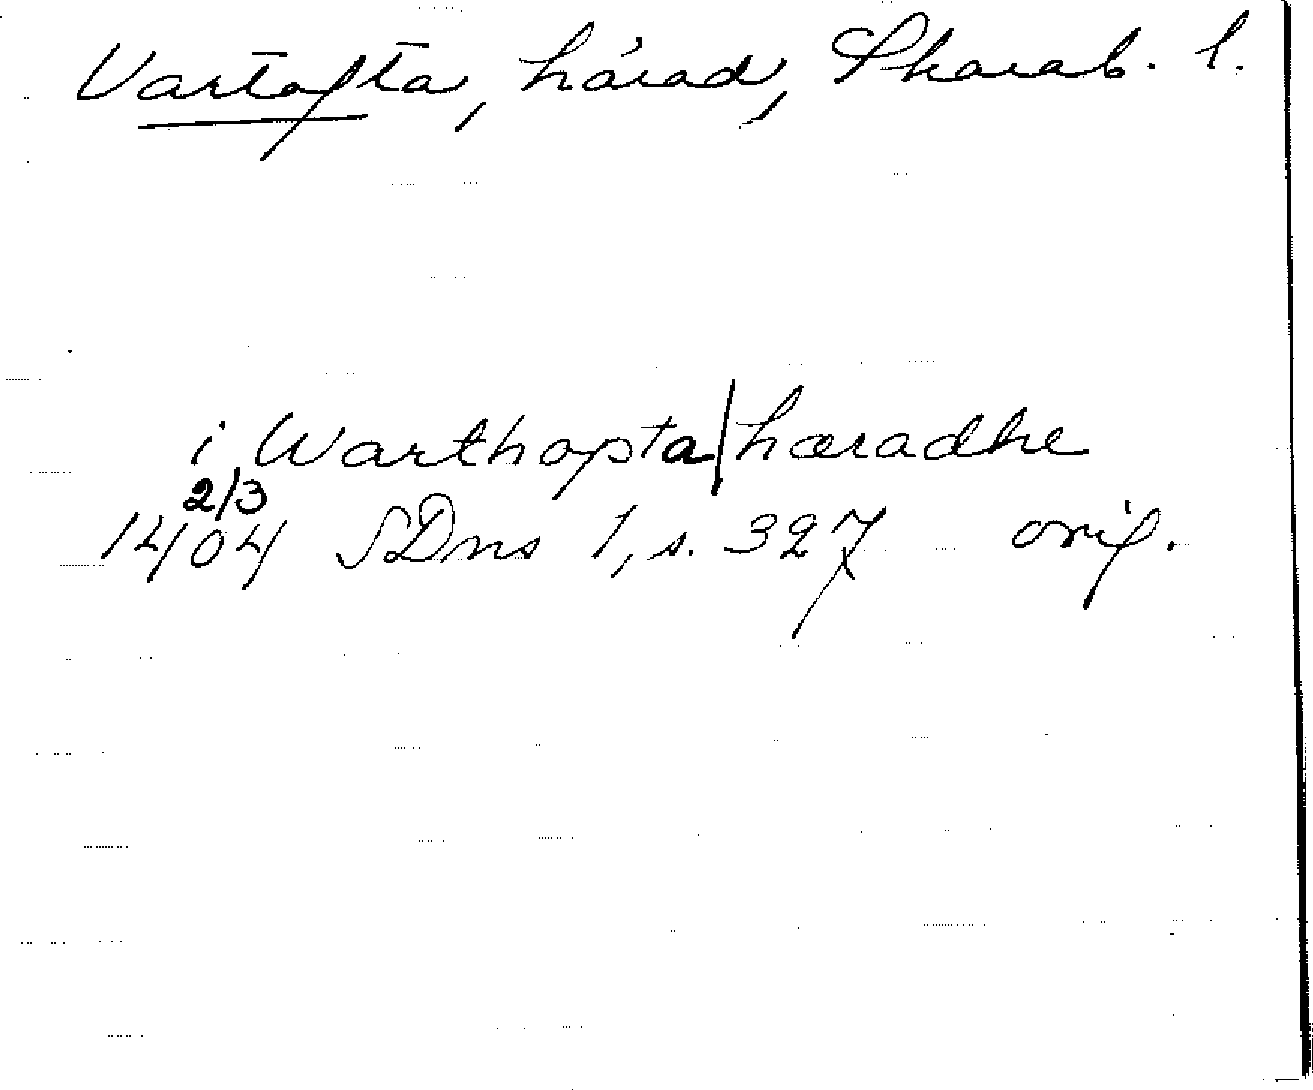 Vartofta, härad, Skarab. l.
i Warthopta|hæradhe
2/3
1404 SDns 1, s. 327 orig.